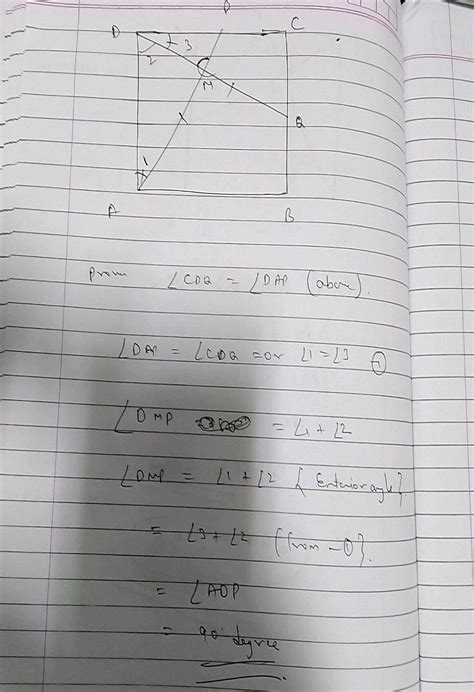 P
D 3 C
2
M
Q
1
A B
From ∠CDQ = ∠DAP (above).
∠DAP = ∠CDQ = or ∠1 = ∠3 ①
∠DMP = ∠1 + ∠2
∠DMP = ∠1 + ∠2 { Exterior angle }
= ∠3 + ∠2 { from - ① }.
= ∠ADP
= 90° degree